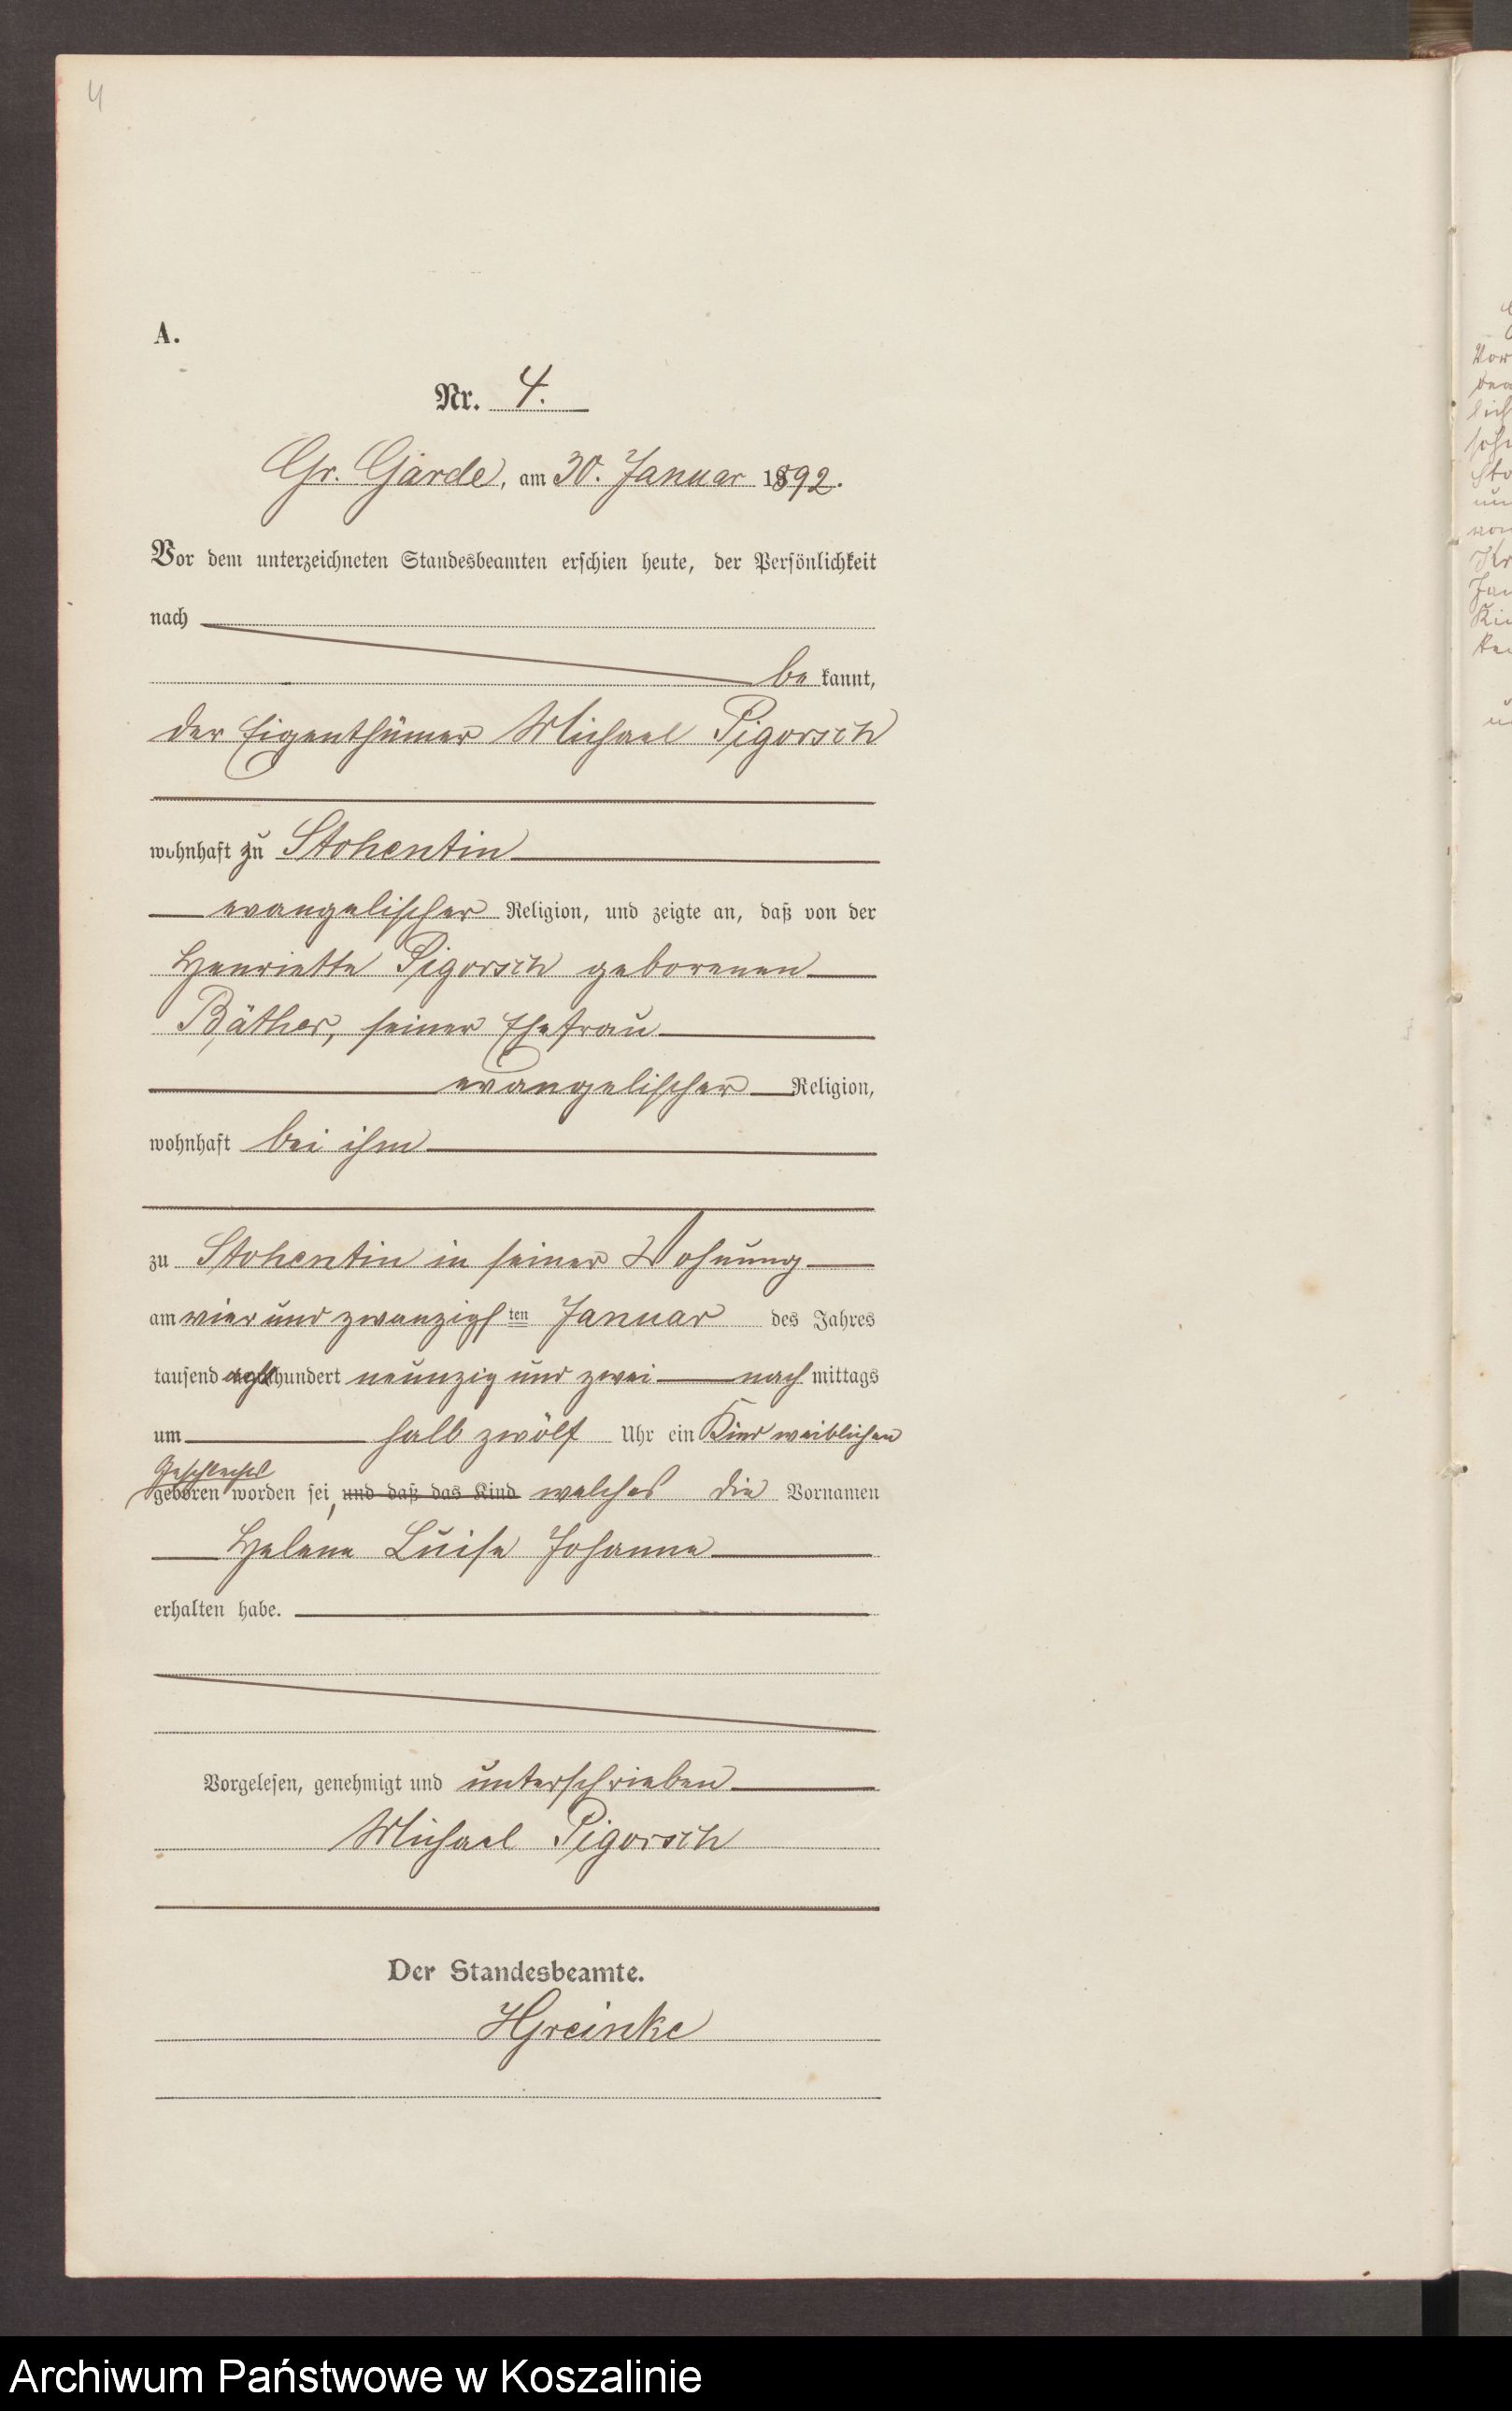 4
A.
Nr. 4.
Gr. Garde, am 30. Januar 1892.
Vor dem unterzeichneten Standesbeamten erschien heute, der Persönlichkeit
nach
be kannt,
der Eigenthümer Michael Pigorsch
wohnhaft zu Stohentin
evangelischer Religion, und zeigte an, daß von der
Henriette Pigorsch geborenen
Bäther, seiner Ehefrau
evangelischer Religion,
wohnhaft bei ihm
zu Stohentin in seiner Wohnung
am vier und zwanzigsten Januar des Jahres
tausend acht hundert neunzig und zwei nach mittags
um halb zwölf Uhr ein Kind weiblichen
Geschlechts
geboren worden sei, und daß das Kind welches die Vornamen
Helene Luise Johanne
erhalten habe.
Vorgelesen, genehmigt und unterschrieben
Michael Pigorsch
Der Standesbeamte.
HGreinke
Archiwum Państwowe w Koszalinie